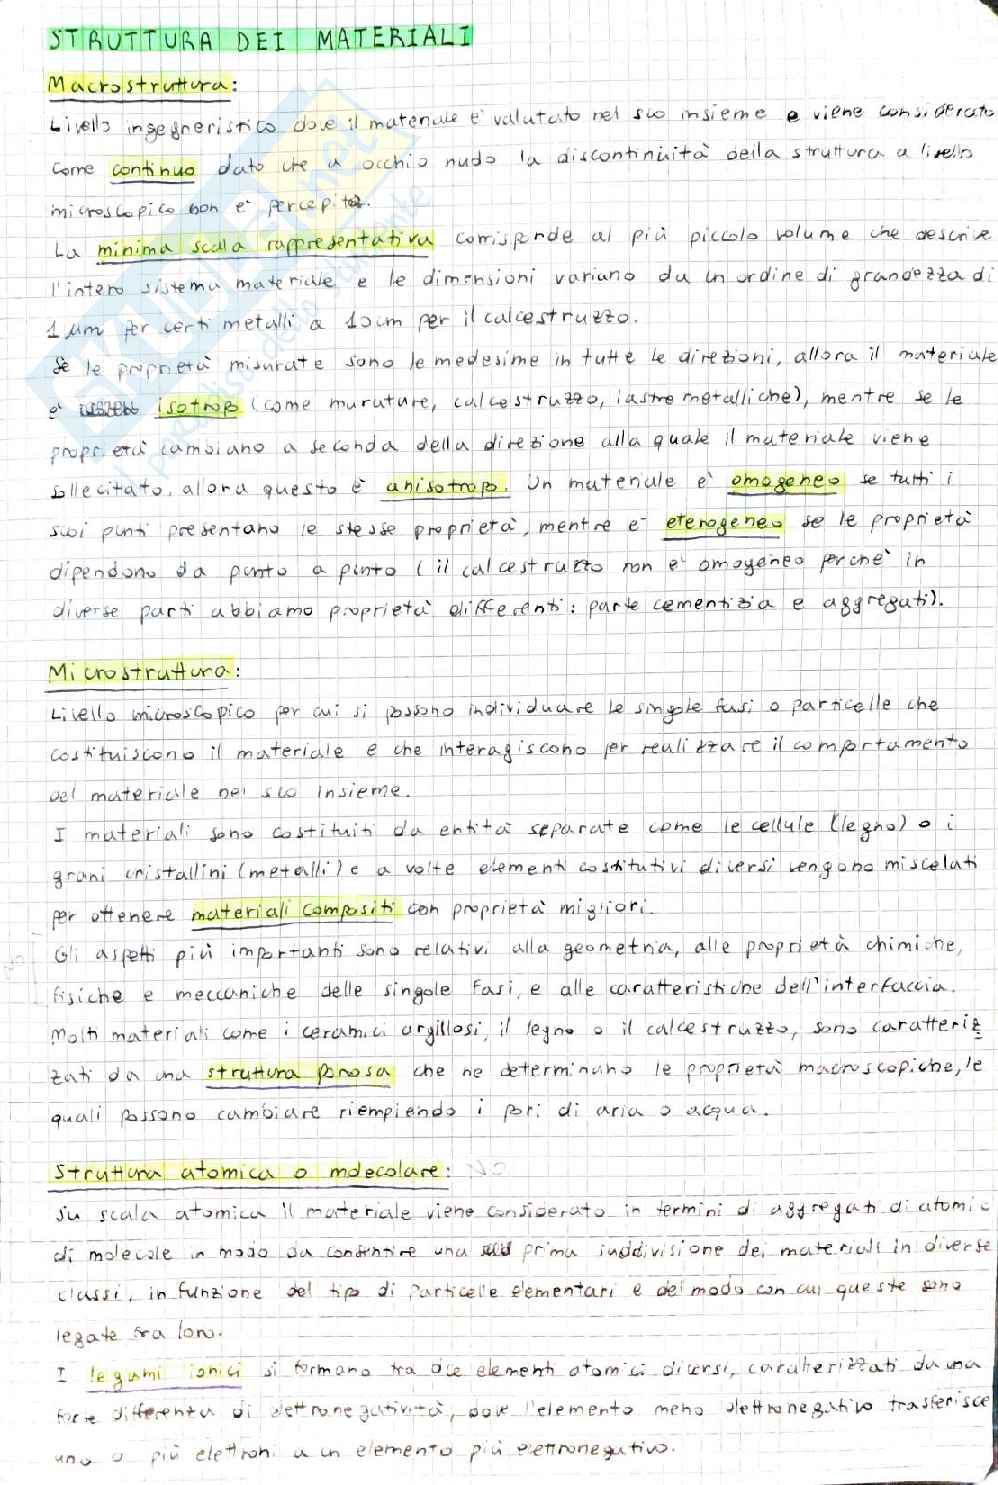 STRUTTURA DEI MATERIALI
Macrostruttura:
Livello ingegneristico dove il materiale è valutato nel suo insieme e viene considerato
come continuo dato che a occhio nudo la discontinuità della struttura a livello
microscopico non è percepita.
La minima scala rappresentativa corrisponde al più piccolo volume che descrive
l'intero sistema materiale e le dimensioni variano da un ordine di grandezza di
1 µm per certi metalli a 10cm per il calcestruzzo.
Se le proprietà misurate sono le medesime in tutte le direzioni, allora il materiale
è isotropo (come murature, calcestruzzo, lastre metalliche), mentre se le
proprietà cambiano a seconda della direzione alla quale il materiale viene
sollecitato, allora questo è anisotropo. Un materiale è omogeneo se tutti i
suoi punti presentano le stesse proprietà, mentre è eterogeneo se le proprietà
dipendono da punto a punto (il calcestruzzo non è omogeneo perchè in
diverse parti abbiamo proprietà differenti: parte cementizia e aggregati).
Microstruttura:
Livello microscopico per cui si possono individuare le singole fasi o particelle che
costituiscono il materiale e che interagiscono per realizzare il comportamento
del materiale nel suo insieme.
I materiali sono costituiti da entità separate come le cellule (legno) o i
grani cristallini (metalli) e a volte elementi costitutivi diversi vengono miscelati
per ottenere materiali compositi con proprietà migliori.
Gli aspetti più importanti sono relativi alla geometria, alle proprietà chimiche,
fisiche e meccaniche delle singole fasi, e alle caratteristiche dell'interfaccia.
Molti materiali come i ceramici argillosi, il legno o il calcestruzzo, sono caratteriz
zati da una struttura porosa che ne determinano le proprietà macroscopiche, le
quali possono cambiare riempiendo i pori di aria o acqua.
Struttura atomica o molecolare: NO
Su scala atomica il materiale viene considerato in termini di aggregati di atomi o
di molecole in modo da consentire una prima suddivisione dei materiali in diverse
classi, in funzione del tipo di particelle elementari e del modo con cui queste sono
legate tra loro.
I legami ionici si formano tra due elementi atomici diversi, caratterizzati da una
forte differenza di elettronegatività, dove l'elemento meno elettronegativo trasferisce
uno o più elettroni a un elemento più elettronegativo.